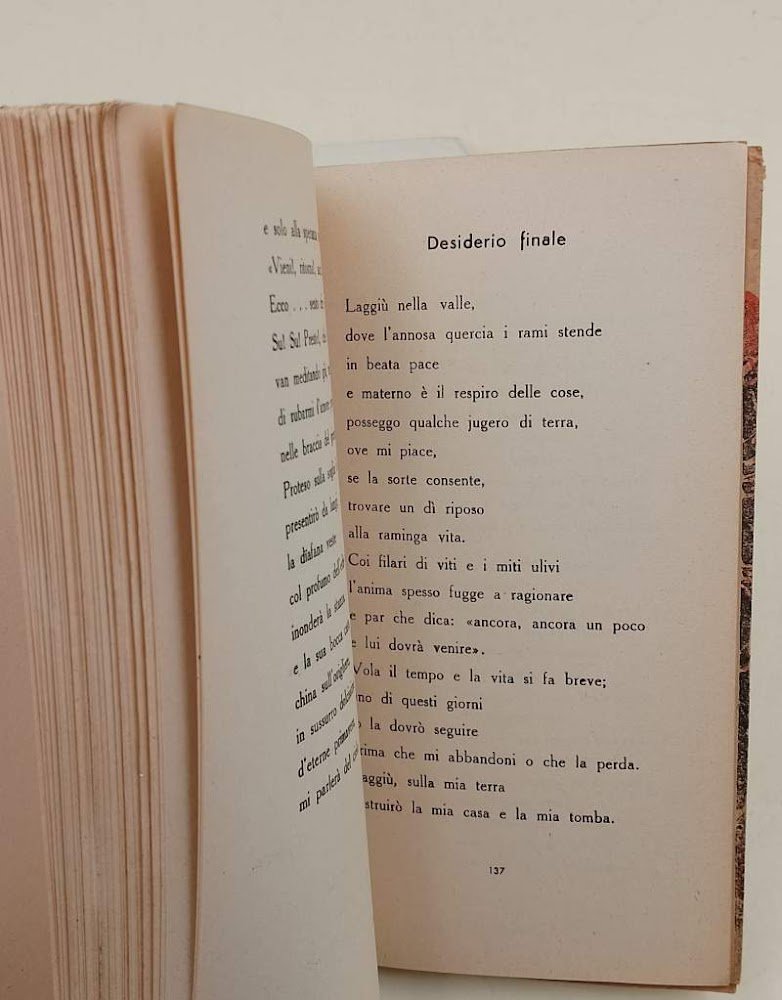 e solo alla
«Vieni!, ritorni!,
Eco . . .
Su! Su! Presto!,
van meditando
di rubarmi
nelle braccia
Proteso sulla
presentirò da
la diafana veste
col profumo
inonderà la stanza
e la sua bocca
china
in sussurro
d'eterne
mi parlerà
Desiderio finale
Laggiù nella valle,
dove l'annosa quercia i rami stende
in beata pace
e materno è il respiro delle cose,
posseggo qualche jugero di terra,
ove mi piace,
se la sorte consente,
trovare un dì riposo
alla raminga vita.
Coi filari di viti e i miti ulivi
l'anima spesso fugge a ragionare
e par che dica: «ancora, ancora un poco
e lui dovrà venire».
Vola il tempo e la vita si fa breve;
di questi giorni
la dovrò seguire
che mi abbandoni o che la perda.
sulla mia terra
la mia casa e la mia tomba.
137